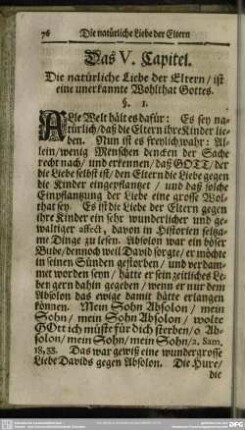 76 Die natürliche Liebe der Eltern
Das V. Capitel.
Die natürliche Liebe der Eltern / ist
eine unerkannte Wohlthat Gottes.
§. 1.
Alle Welt hält es dafür: Es sey na-
türlich / daß die Eltern ihre Kinder lie-
ben. Nun ist es freylich wahr: Al-
lein / wenig Menschen dencken der Sache
recht nach / und erkennen / daß GOTT / der
die Liebe selbst ist / den Eltern die Liebe gegen
die Kinder eingepflantzet / und daß solche
Einpflantzung der Liebe eine grosse Wol-
that sey. Es ist die Liebe der Eltern gegen
ihre Kinder ein sehr wunderlicher und ge-
waltiger affect, davon in Historien seltza-
me Dinge zu lesen. Absolon war ein böser
Bube / dennoch weil David sorgte / er möchte
in seinen Sünden gestorben / und verdam-
met worden seyn / hätte er sein zeitliches Le-
ben gern dahin gegeben / wenn er nur dem
Absolon das ewige damit hätte erlangen
können. Mein Sohn Absolon / mein
Sohn / mein Sohn Absolon / wolte
GOtt ich müste für dich sterben / o Ab-
solon / mein Sohn / mein Sohn / 2. Sam.
18, 33. Das war gewiß eine wundergrosse
Liebe Davids gegen Absolon. Die Hure /
die